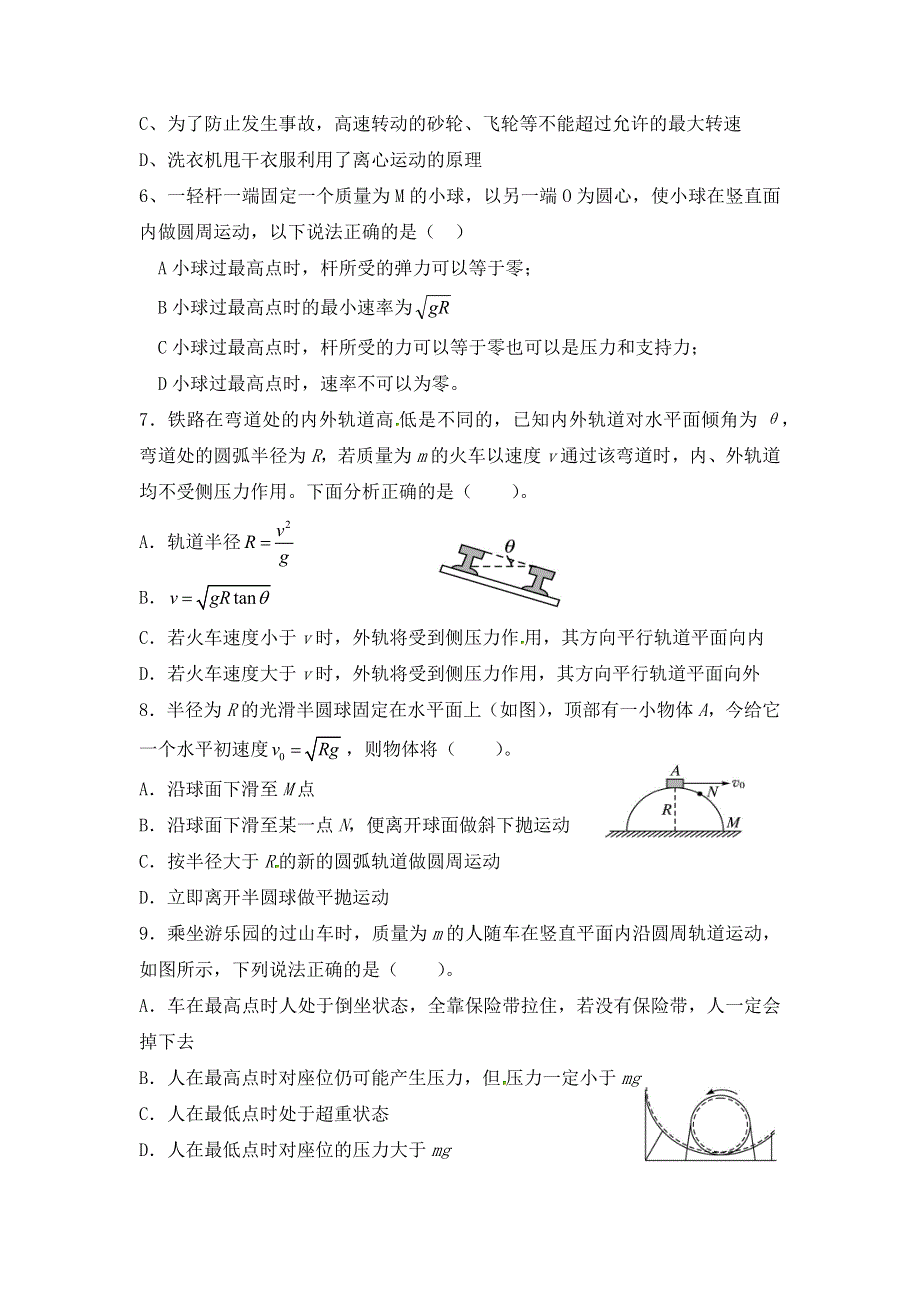 C、为了防止发生事故，高速转动的砂轮、飞轮等不能超过允许的最大转速
D、洗衣机甩干衣服利用了离心运动的原理
6、一轻杆一端固定一个质量为 M 的小球，以另一端 O 为圆心，使小球在竖直面
内做圆周运动，以下说法正确的是（ ）
A 小球过最高点时，杆所受的弹力可以等于零；
B 小球过最高点时的最小速率为√gR
C 小球过最高点时，杆所受的力可以等于零也可以是压力和支持力；
D 小球过最高点时，速率不可以为零。
7．铁路在弯道处的内外轨道高低是不同的，已知内外轨道对水平面倾角为 θ，
弯道处的圆弧半径为 R，若质量为 m 的火车以速度 v 通过该弯道时，内、外轨道
均不受侧压力作用。下面分析正确的是（  ）。
A．轨道半径 R = v²/g
θ
B．v = √gR tanθ
C．若火车速度小于 v 时，外轨将受到侧压力作用，其方向平行轨道平面向内
D．若火车速度大于 v 时，外轨将受到侧压力作用，其方向平行轨道平面向外
8．半径为 R 的光滑半圆球固定在水平面上（如图），顶部有一小物体 A，今给它
一个水平初速度 v₀ = √Rg ，则物体将（  ）。
A v₀
N
R M
A．沿球面下滑至 M 点
B．沿球面下滑至某一点 N，便离开球面做斜下抛运动
C．按半径大于 R 的新的圆弧轨道做圆周运动
D．立即离开半圆球做平抛运动
9．乘坐游乐园的过山车时，质量为 m 的人随车在竖直平面内沿圆周轨道运动，
如图所示，下列说法正确的是（  ）。
A．车在最高点时人处于倒坐状态，全靠保险带拉住，若没有保险带，人一定会
掉下去
B．人在最高点时对座位仍可能产生压力，但压力一定小于 mg
C．人在最低点时处于超重状态
D．人在最低点时对座位的压力大于 mg